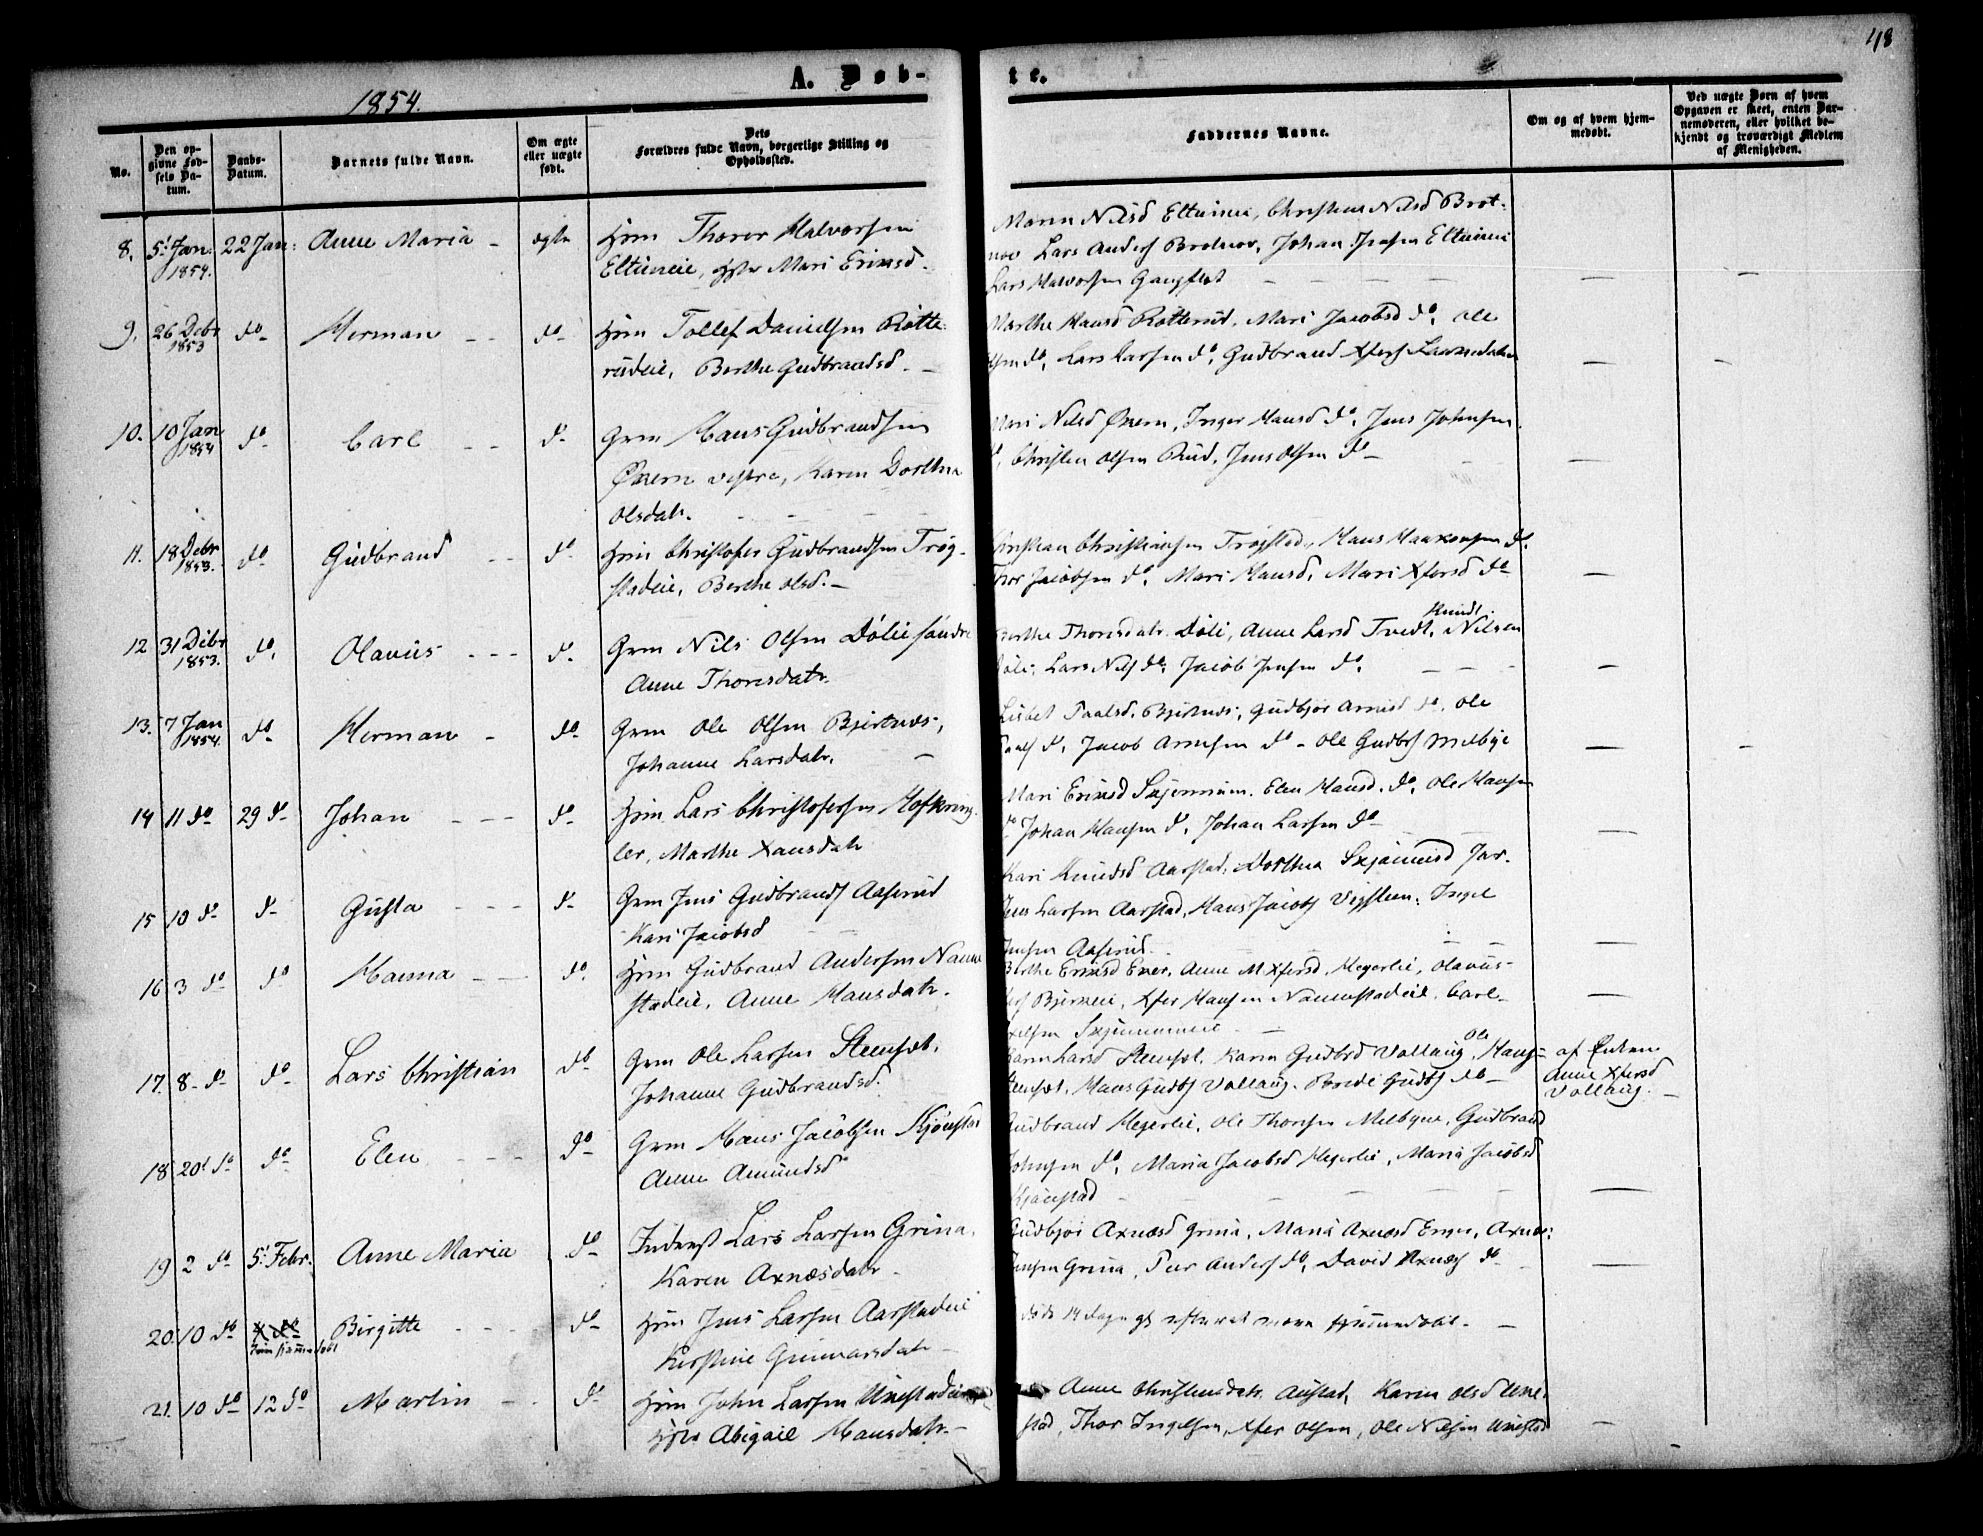 48
1854.
A. Døb-
te.
No.
Den op-
givne Fød-
sels Da-
tum.
Daabs-
Datum.
Barnets fulde Navn.
Om ægte
eller uægte
født.
Dets
Forældres fulde Navn, borgerlige Stilling og
Opholdssted.
Faddernes Navne.
Om og af hvem hjem-
medøbt.
Ved uægte Børn af hvem
Opgaven er skeet, enten Bar-
nemoderen, eller hvilket be-
kjendt og troværdigt Medlem
af Menigheden.
8. 5' Jan: 22 Jan: Anne Maria - ægte Hsm Thorer Halvorsen
1854.
Eltuneie, Mari Eriksd.
Maren Nilsd Eltuneie, Christian Nilsd Brot-
nov Lars Anders Brotnov, Johan Jensen Eltuneie
Lars Halvorsen Gangflot
9. 26 Debr do Herman - - do Hsm Tollef Danielsen Rotte-
1853
rudeie, Berthe Gudbrandsd.
Marthe Hansd Rotterud, Mari Jacobsd do, Ole
do, Lars Larsen do, Gudbrand Xfers
10. 10 Jan do Carl - - do Grm Hans Gudbrandsen
1854
Øxern vestre, Karen Dorthea
Olsdatr.
Mari Nilsd Øxern, Inger Hansd do, Jens Johnsen
Christen Olsen Ruud, Jens Olsen do
11. 18 Debr do Gudbrand - - do Hsm Christofer Gudbrandsen Trøg-
1853.
stadeie, Berthe Olsd. -
Christian Christiansen Trøgstad, Hans Haakonsen do.
Thor Jacobsen do, Mari Hansd, Mari Xfersd do
12 31 Debr do. Olavus - - - do. Grm Nils Olsen Dølie søndre
1853.
Anne Thoresdatr.
Berthe Thoresdatr Døli, Anne Larsd Tvedt, Nilsen
Døli, Lars Nils do, Jacob Jensen do.
13. 7 Jan do Herman - do Grm Ole Olsen Bjertnes,
1854.
Johanne Larsdatr.
Lisbet Paalsd. Bjertnes, Gudbjør Arnesd do, Ole
Paals do, Jacob Arnesen do - Ole Gudbs Melbye
14 11 do 29 do Johan - - - do Hsm Lars Christofersen Hofkring-
ler, Marthe Hansdatr
Mari Eriksd Skjønnum. Elen Hansd. do, Ole Hansen
do Johan Hansen do, Johan Larsen do
15 10 do do Gusta - - - do Grm Jens Gudbrands Aaserud
Kari Jacobsd
Kari Knudsd Aarstad, Dorthea
Jens Larsen Aarstad, Hans Jacobs Ingel
Jensen Aaserud
16 3 do do Hanna - - do. Hsm Gudbrand Andersen Nann-
stadeie, Anne Hansdatr.
Berthe Eriksd Ener, Anne M Xfersd, Hegerlie, Olavus
Bjerkeie, Xfer Hansen Nannestadeie, Carl
17. 8 do do Lars Christian do Grm Ole Larsen Stensæt,
Johanne Gudbrandsd.
Karen Larsd Stensæt, Karen Gudbsd Vollaug, Ole Hans-
Stensæt, Hans Gudbs Vollaug. Brede Gudbs do
af Enken
Anne Xfersd
Vollaug. -
18 20' do do Elen - - - do Grm Hans Jacobsen Kjønstad
Anne Amundsd
Gudbrand Hegerlie, Ole Thoresen Melbye, Gudbrand
Johnsen do, Maria Jacobsd Hegerlie, Maria Jacobsd
Kjønstad
19 2 do 5' Febr. Anne Maria do Inderst Lars Larsen Grina,
Karen Axnæsdatr
Gudbjør Axnæsd Grina, Maria Axnæsd Enger, Axnæs
Jensen Grina, Peer Anders do, David Axnæs do
20. 10 do 4 do Birgitte - - - do Hsm Jens Larsen Aarstadeie
Kirstine Gunnarsdatr
døde 14 Dage
21. 10 do 12 do Martin - - do Hsm John Larsen Unestadeie
Abigael Hansdatr. -
Anne Christensdatr Austad, Karen Olsd Une-
stad, Thor Ingelsen, Xfer Olsen, Ole Nilsen Unestad